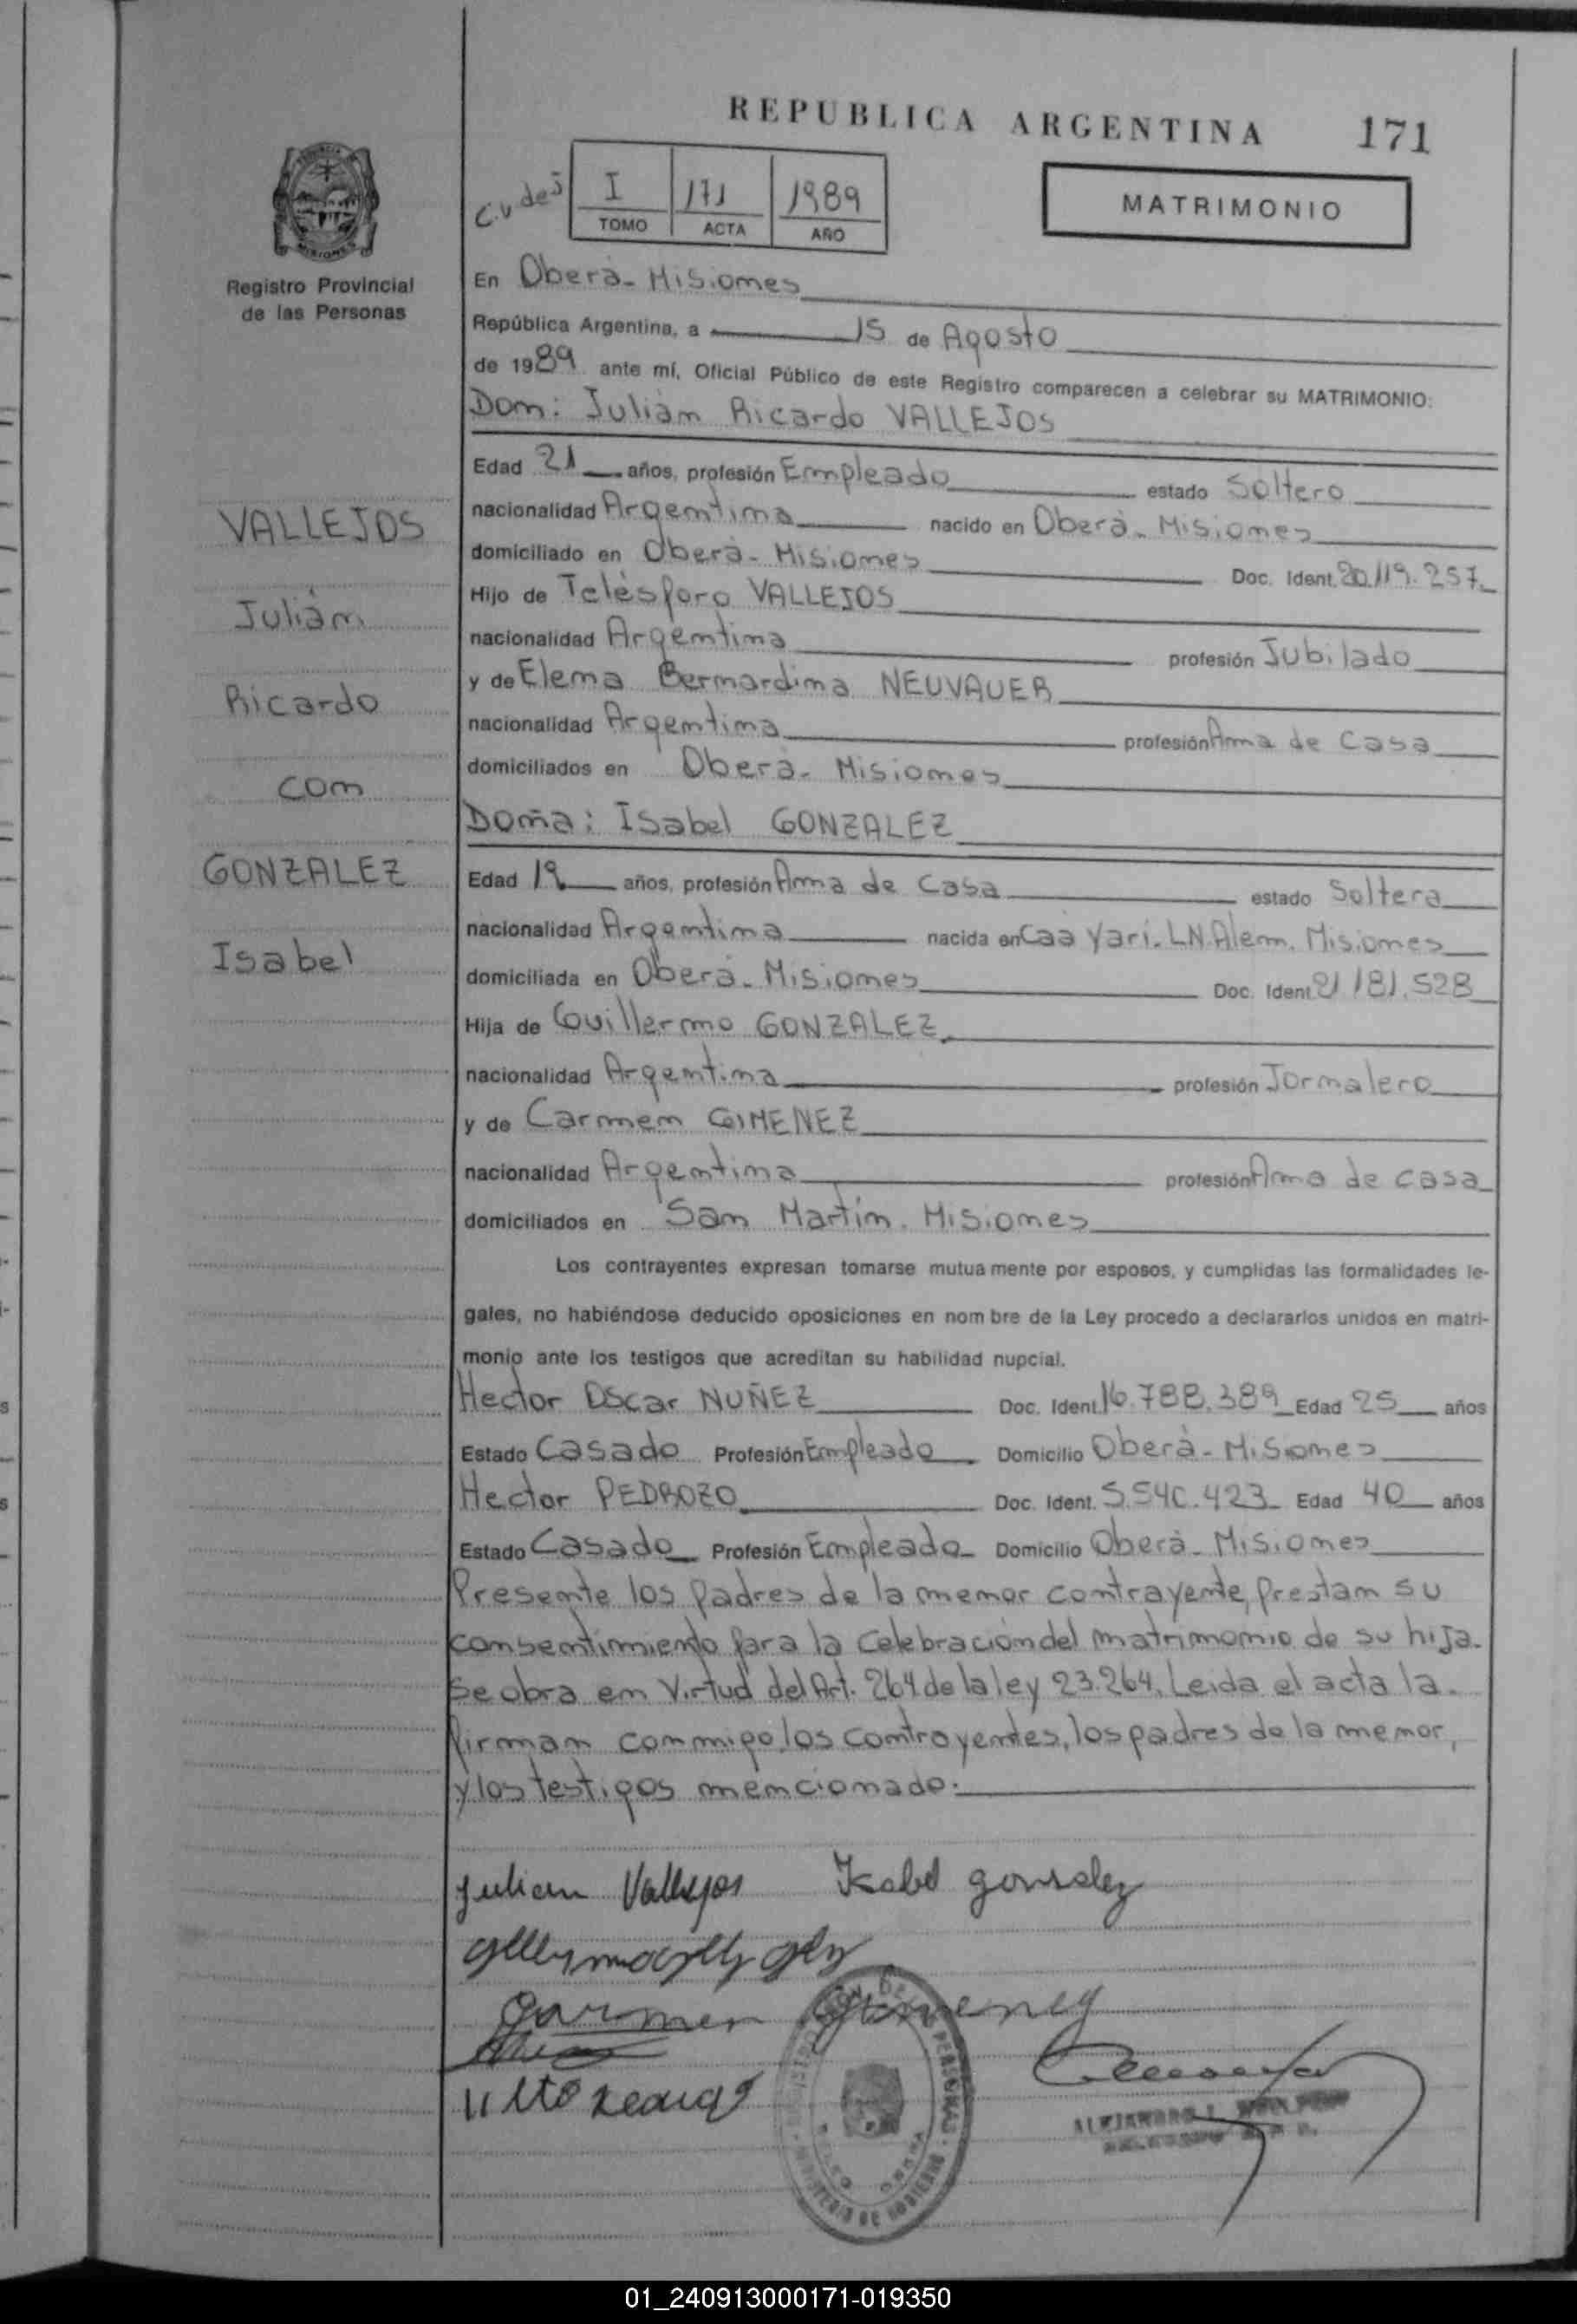 REPUBLICA ARGENTINA 171
I 171 1989
TOMO ACTA AÑO
MATRIMONIO
Registro Provincial
de las Personas
En Oberá - Misiones
República Argentina, a 15 de Agosto
de 1989 ante mí, Oficial Público de este Registro comparecen a celebrar su MATRIMONIO:
Don: Julián Ricardo VALLEJOS
Edad 21 años, profesión Empleado estado Soltero
nacionalidad Argentina nacido en Oberá - Misiones
domiciliado en Oberá - Misiones Doc. Ident. 20.119.257
Hijo de Telésforo VALLEJOS
nacionalidad Argentina profesión Jubilado
y de Elena Bernardina NEUVAUER
nacionalidad Argentina profesión Ama de Casa
domiciliados en Oberá - Misiones
Doña: Isabel GONZALEZ
Edad 19 años, profesión Ama de Casa estado Soltera
nacionalidad Argentina nacida en Caá Yarí. L.N.Alem. Misiones
domiciliada en Oberá - Misiones Doc. Ident 21.181.528
Hija de Guillermo GONZALEZ
nacionalidad Argentina profesión Jornalero
y de Carmen GIMENEZ
nacionalidad Argentina profesión Ama de casa
domiciliados en San Martín. Misiones
VALLEJOS
Julián
Ricardo
con
GONZALEZ
Isabel
Los contrayentes expresan tomarse mutuamente por esposos, y cumplidas las formalidades le-
gales, no habiéndose deducido oposiciones en nombre de la Ley procedo a declararlos unidos en matri-
monio ante los testigos que acreditan su habilidad nupcial.
Hector Oscar NUÑEZ Doc. Ident. 16.788.389 Edad 25 años
Estado Casado Profesión Empleado Domicilio Oberá - Misiones
Hector PEDROZO Doc. Ident. 5.540.423 Edad 40 años
Estado Casado Profesión Empleado Domicilio Oberá - Misiones
Presente los padres de la menor contrayente, prestan su
consentimiento para la celebración del matrimonio de su hija.
Se obra en Virtud del Art. 264 de la ley 23.264. Leida el acta la
firman conmigo, los contrayentes, los padres de la menor,
y los testigos mencionado.
Julian Vallejos Isabel gonzalez
Carmen Gimenez
01_240913000171-019350